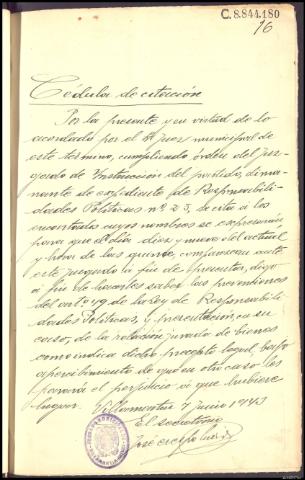 C.8.844.180
16
Cedula de citación
Por la presente y en virtud de lo
acordado por el Sr Juez municipal de
este termino, cumpliendo órden del juz-
gado de Instrucción del partido, dima-
nante de expediente de Responsabili-
dades Politicas nº 23, se cita a los
encartados cuyos nombres se expresan
para que el dia diez y nueve del actual
y hora de las quince, comparezcan ante
este juzgado a fin de prestar, digo
a fin de hacerles saber las prevenciones
del artº 49 de la Ley de Responsabili-
dades Politicas, y presentación, en su
caso, de la relación jurada de bienes
como indica dicho precepto legal, bajo
apercibimiento de que en otro caso les
parará el perjuicio a que hubiere
lugar. Villamontan 7 junio 1943
El secretario
José